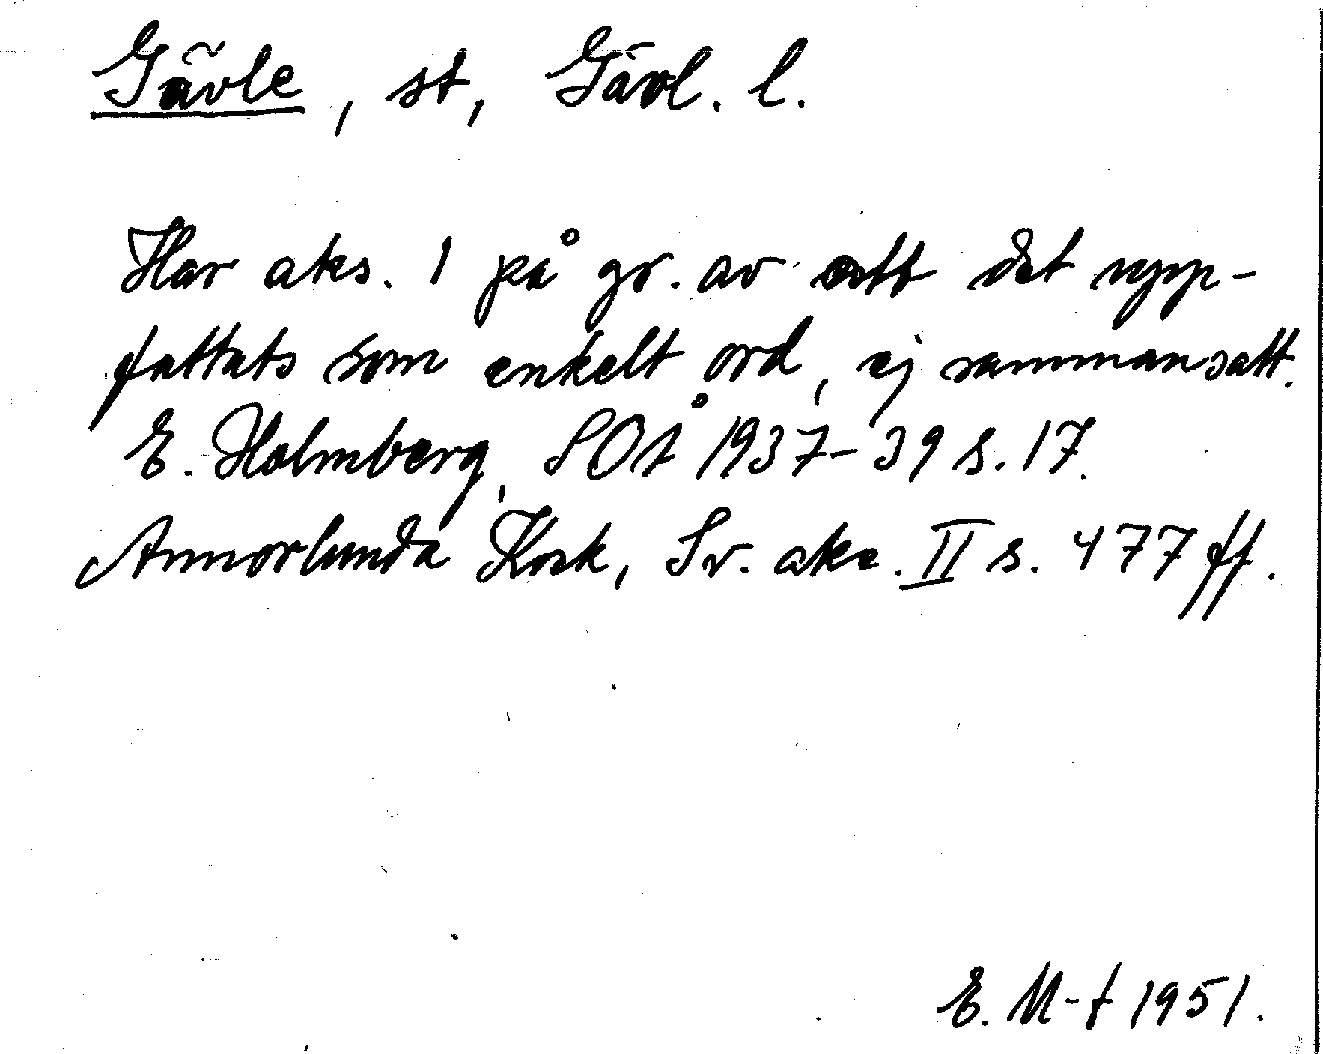 Gävle, st, Gävl. l.
Har aks. 1 på gr. av att det upp-
fattats som enkelt ord, ej sammansatt.
E. Holmberg, SOÅ 1937-39 s. 17.
Annorlunda Kock, Sv. akc. II s. 477 ff.
E. M-t 1951.